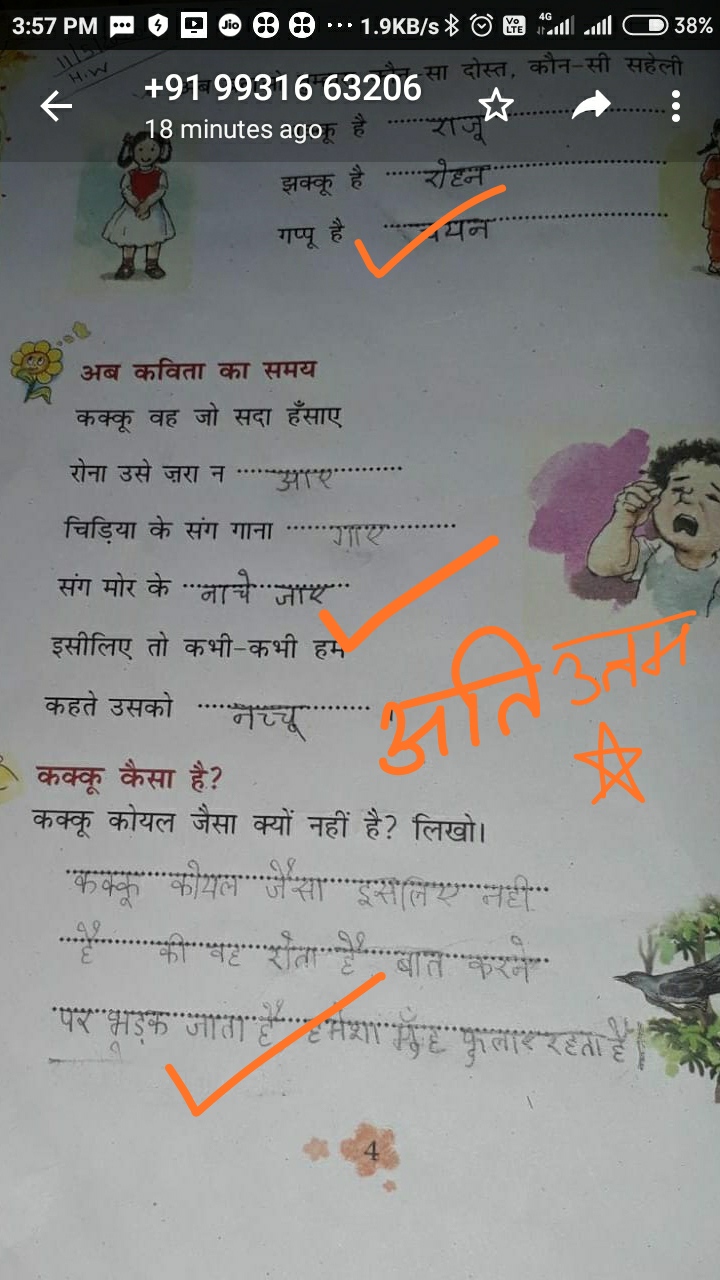 3:57 PM Jio 1.9KB/s Vo LTE 4G 38%
11/5
H.W
+91 99316 63206
18 minutes ago
सा दोस्त, कौन-सी सहेली
क्कू है राजू
झक्कू है रोहन
गप्पू है चयन
अब कविता का समय
कक्कू वह जो सदा हँसाए
रोना उसे ज़रा न आए
चिड़िया के संग गाना गाए
संग मोर के नाचे जाए
इसीलिए तो कभी-कभी हम
कहते उसको नच्चू ।
अति उतम
कक्कू कैसा है?
कक्कू कोयल जैसा क्यों नहीं है? लिखो।
कक्कू कोयल जैसा इसलिए नही
है की वह रोता है बात करने
पर भड़क जाता है हमेशा मुँह फुलाए रहता है।
4